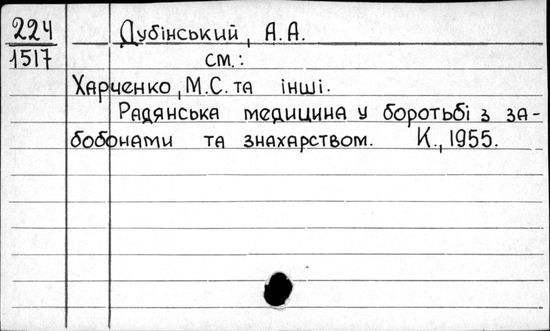 224
1517
Дубінський, А.А.
см.:
Харченко, М.С. та інші.
Радянська медицина у боротьбі з за-
бобонами та знахарством. К., 1955.